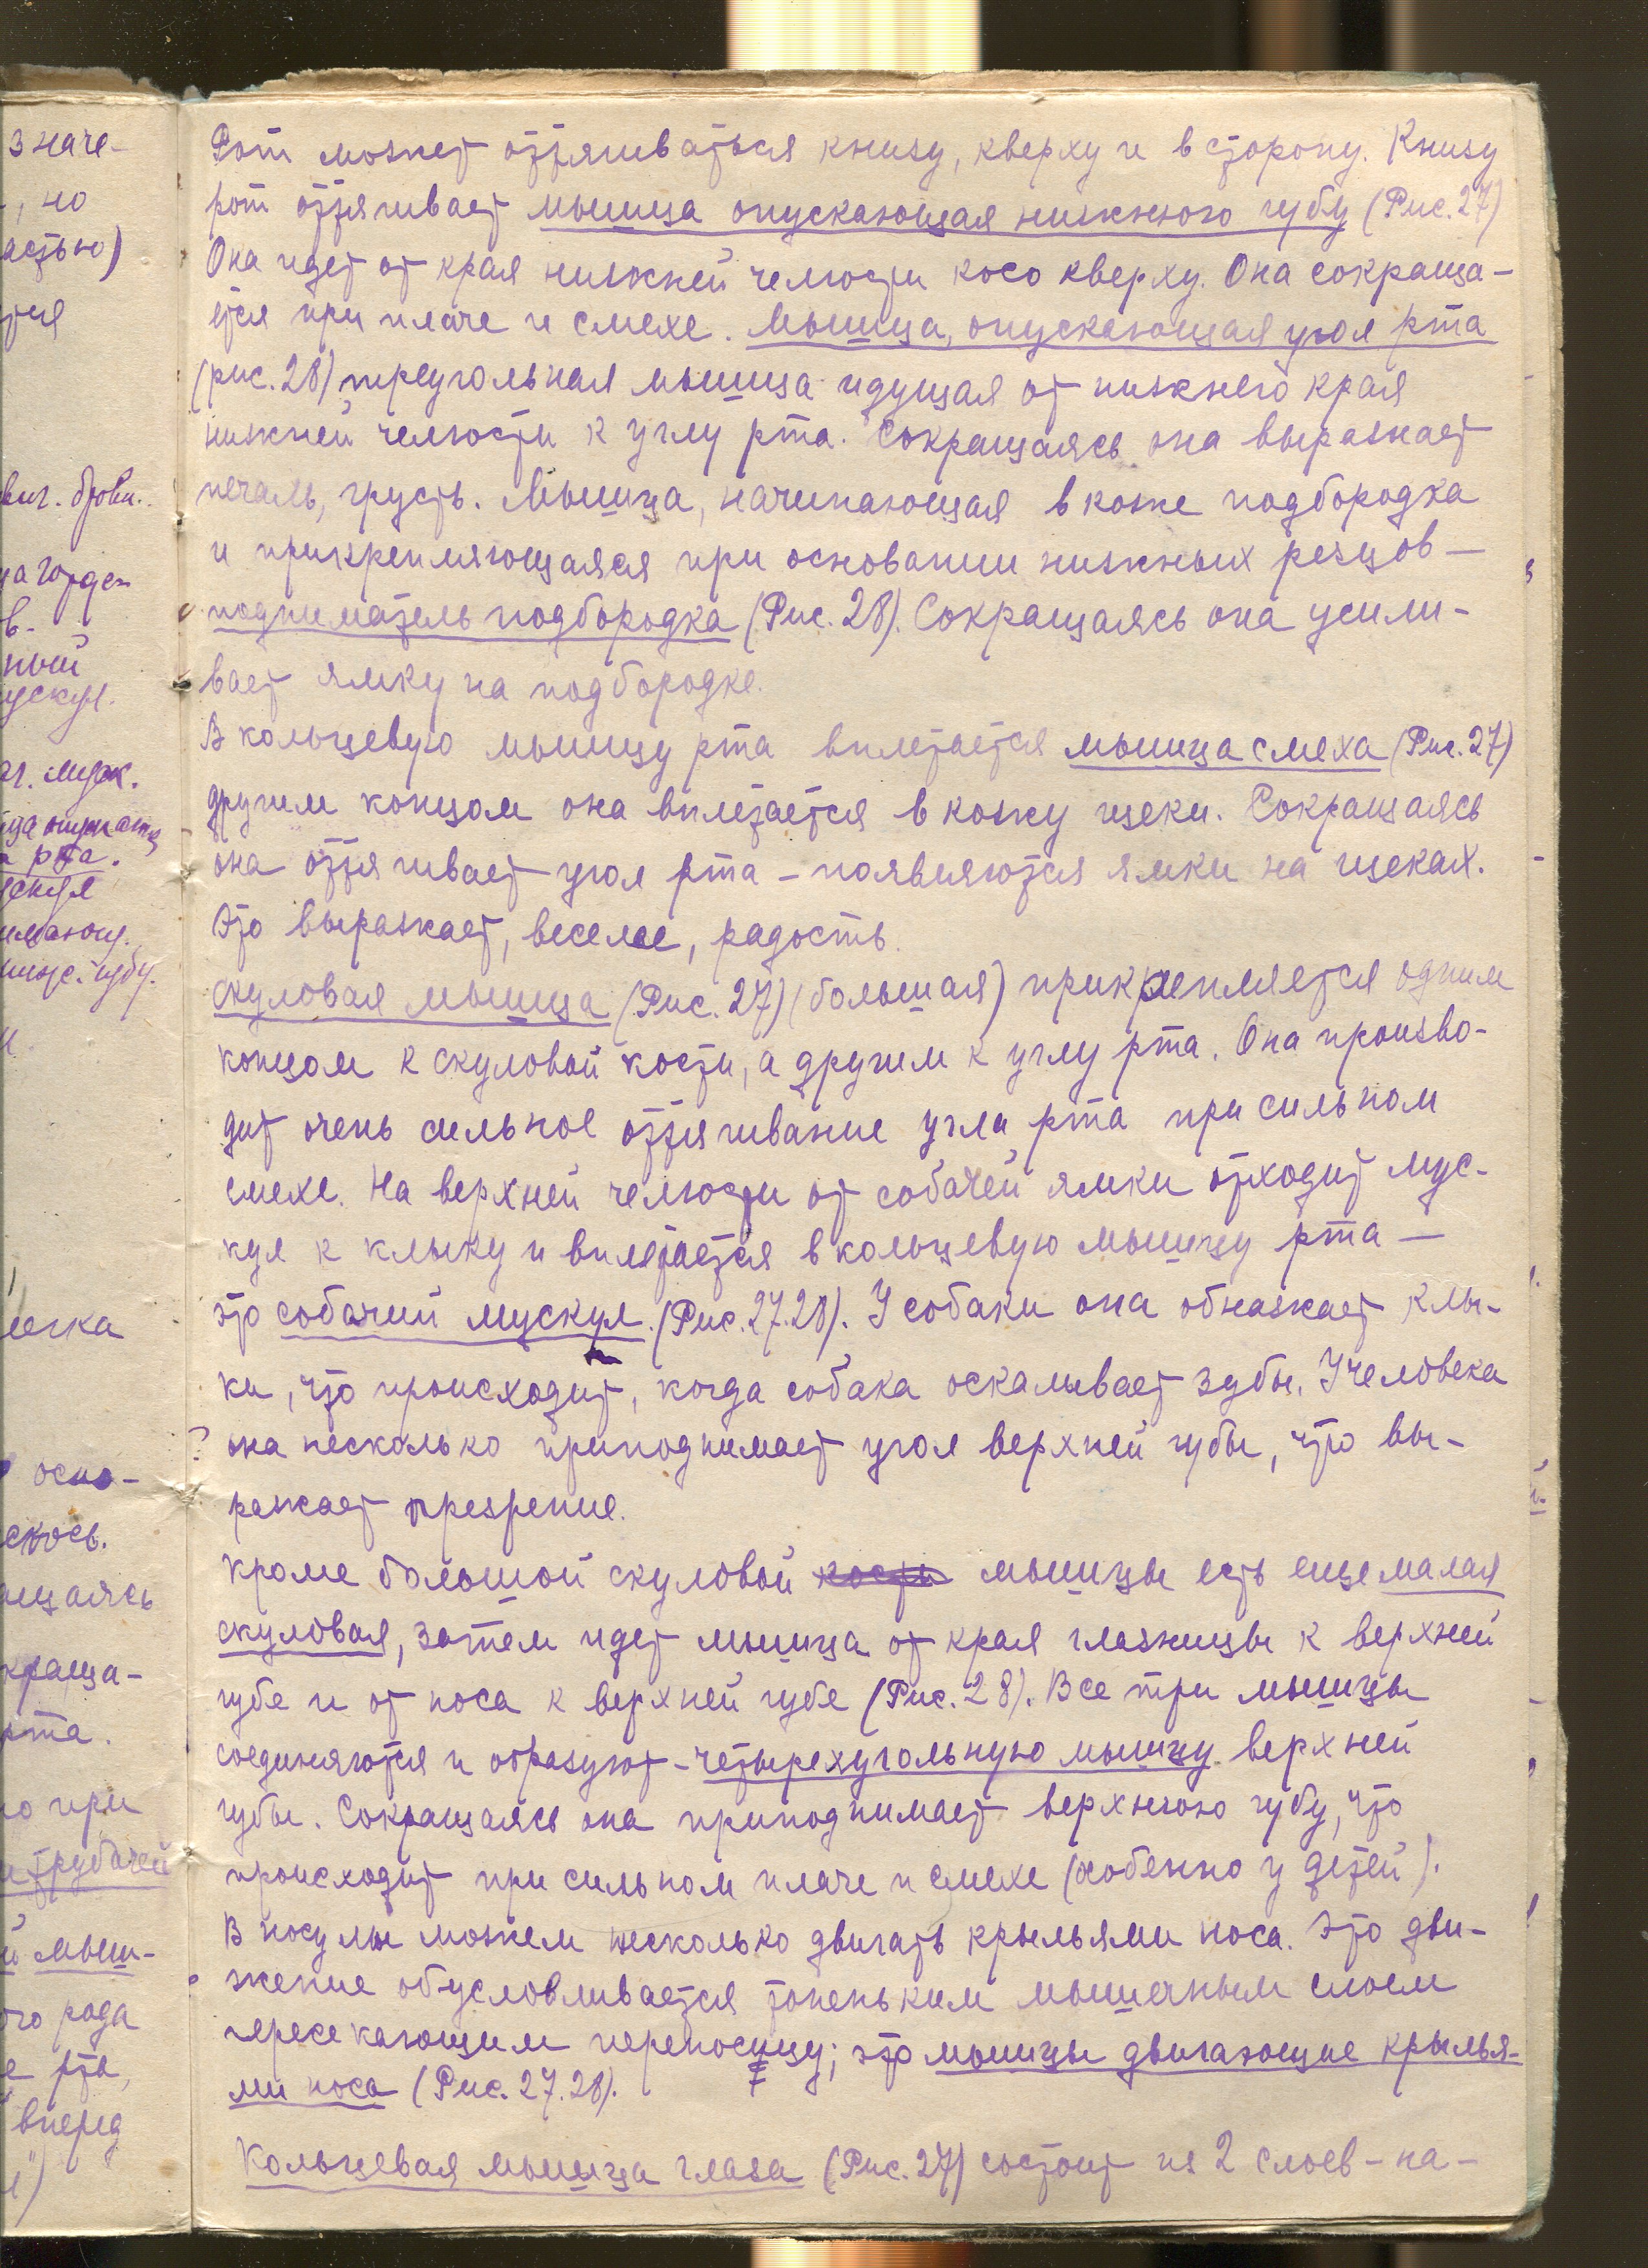 Рот может оттягиваться книзу, кверху и в сторону. Книзу
рот оттягивает мышца опускающая нижнюю губу (Рис. 27)
Она идет от края нижней челюсти косо кверху. Она сокраща-
ется при плаче и смехе. Мышца, опускающая угол рта
(рис. 28) треугольная мышца идущая от нижнего края
нижней челюсти к углу рта. Сокращаясь она выражает
печаль, грусть. Мышца, начинающая в коже подбородка
и прикрепляющаяся при основании нижних резцов —
подниматель подбородка (Рис. 28). Сокращаясь она усили-
вает ямку на подбородке.
В кольцевую мышцу рта вплетается мышца смеха (Рис. 27)
другим концом она вплетается в кожу щеки. Сокращаясь
она оттягивает угол рта - появляются ямки на щеках.
Это выражает, веселье, радость.
Скуловая мышца (Рис. 27) (большая) прикрепляется одним
концом к скуловой кости, а другим к углу рта. Она произво-
дит очень сильное оттягивание угла рта при сильном
смехе. На верхней челюсти от собачей ямки отходит мус-
кул к клыку и вплетается в кольцевую мышцу рта —
это собачий мускул. (Рис. 27.28). У собаки она обнажает клы-
ки, что происходит, когда собака оскаливает зубы. У человека
? она несколько приподнимает угол верхней губы, что вы-
ражает презрение.
Кроме большой скуловой кости мышцы есть еще малая
скуловая, затем идет мышца от края глазницы к верхней
губе и от носа к верхней губе (Рис. 28). Все три мышцы
соединяются и образуют - четырехугольную мышцу верхней
губы. Сокращаясь она приподнимает верхнюю губу, что
происходит при сильном плаче и смехе (особенно у детей).
В носу мы можем несколько двигать крыльями носа. Это дви-
жение обусловливается тоненьким мышечным слоем
пересекающим переносицу; это мышцы двигающие крылья-
ми носа (Рис. 27.28).
Кольцевая мышца глаза (Рис. 27) состоит из 2 слоев - на-
значе-
, но
астью)
ног. брови.
ный
ускул.
рта.
губу.
оско-
скось.
ащаясь
краща-
рта.
о при
трубачей
й мыш-
ого рода
вперед